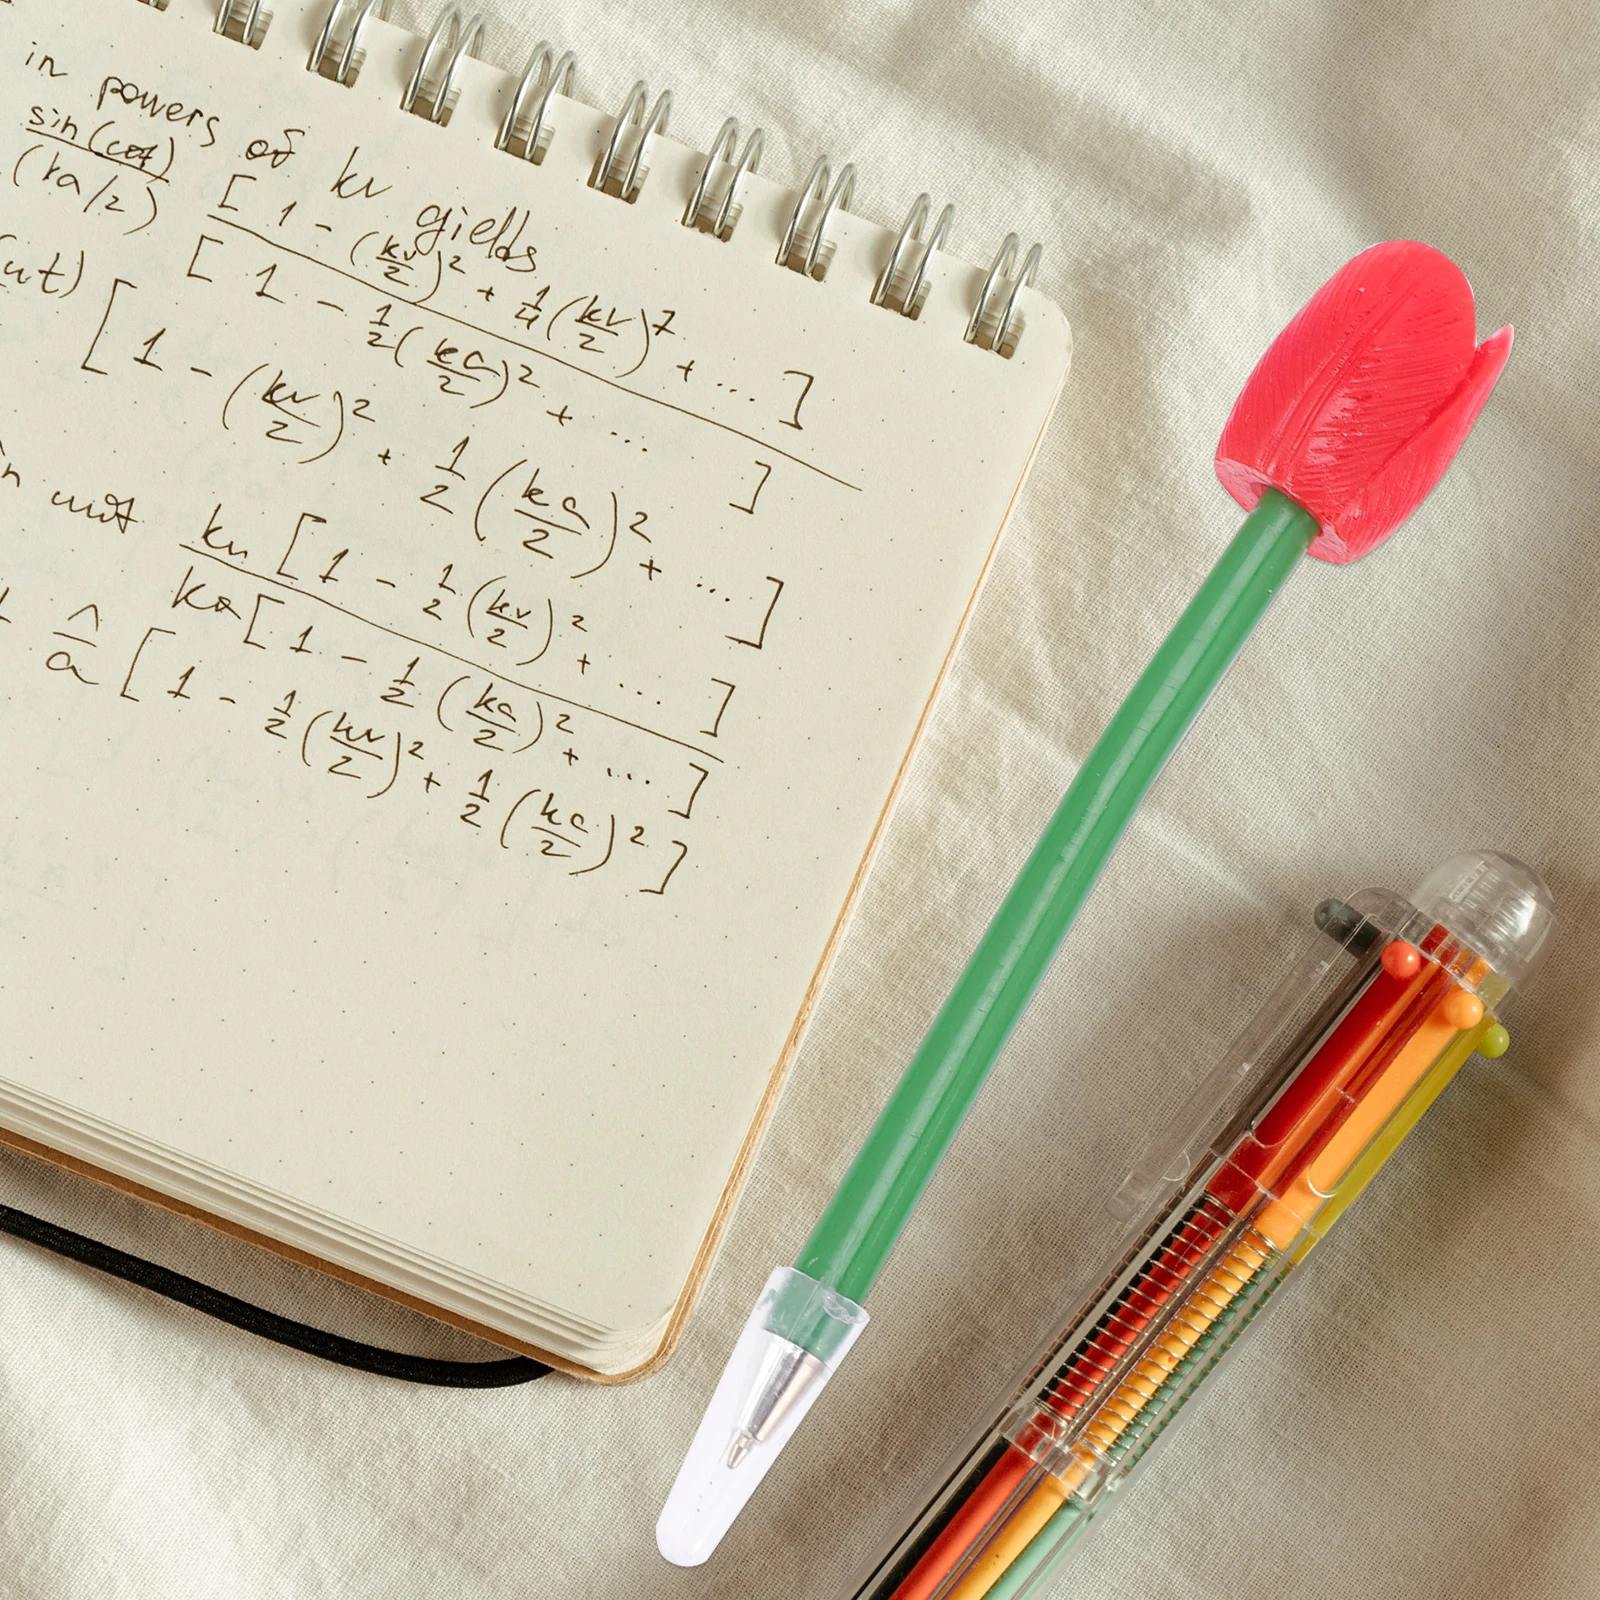 in powers of kr gields
sin(cot) / (ka/2) [1 - (kr/2)² + 1/4(kr/2)⁷ + ...] / [1 - 1/2(ka/2)² + ...]
ut) [1 - (kr/2)² + 1/2(ka/2)² + ...]
kr[1 - 1/2(kr/2)² + ...] / ka[1 - 1/2(ka/2)² + ...]
^/a [1 - 1/2(kr/2)² + 1/2(ka/2)²]